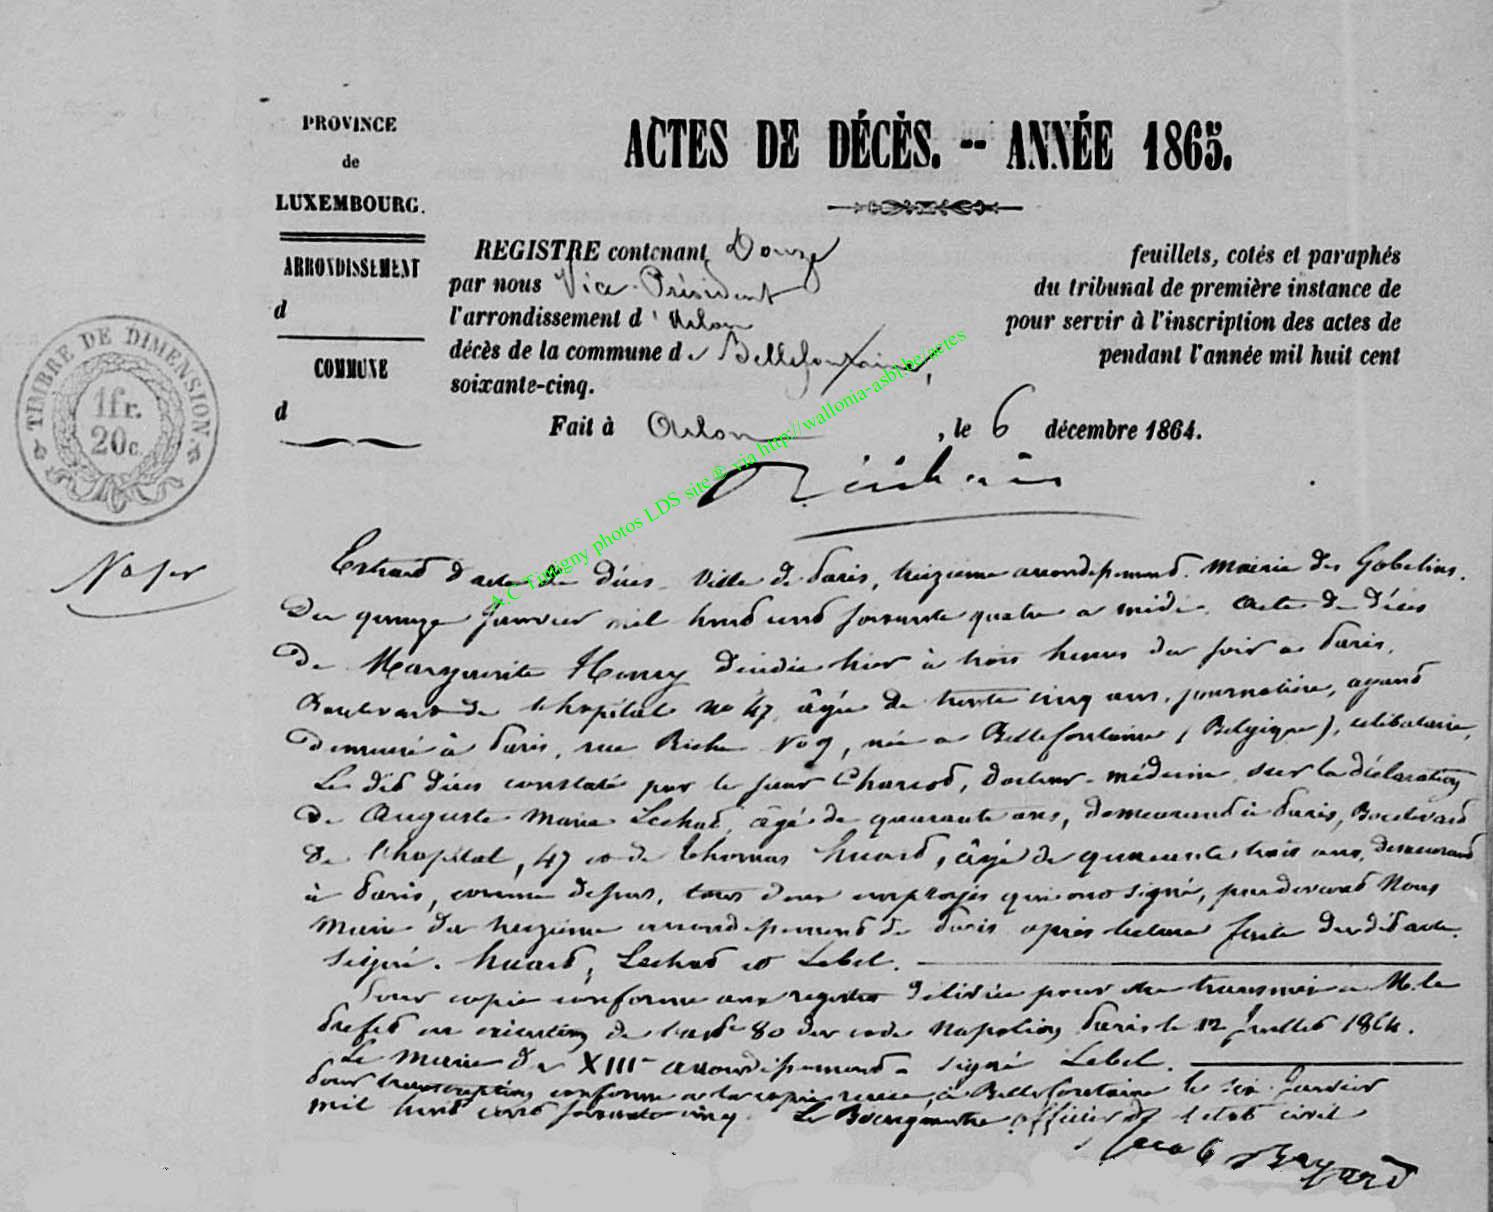 PROVINCE
de
LUXEMBOURG.
ARRONDISSEMENT
d
COMMUNE
d
TIMBRE DE DIMENSION.
1 fr.
20 c.
ACTES DE DÉCÈS. -- ANNÉE 1865.
REGISTRE contenant Douze feuillets, cotés et paraphés
par nous Vice-Président du tribunal de première instance de
l'arrondissement d'Arlon pour servir à l'inscription des actes de
décès de la commune de Bellefontaine, pendant l'année mil huit cent
soixante-cinq.
Fait à Arlon, le 6 décembre 1864.
A.C Tintigny photos LDS site @ via http://wallonia-asbl.be/actes
No 1er
Extrait d'acte de décès. Ville de Paris, treizième arrondissement. Mairie des Gobelins.
Du quinze Janvier mil huit cent soixante quatre à midi. Acte de décès
de Marguerite Henry décédée hier à trois heures du soir à Paris,
Boulevard de l'hopital no 47, âgée de trente cinq ans, journalière, ayant
demeuré à Paris, rue Riche No 9, née à Bellefontaine (Belgique), célibataire,
Le dit décès constaté par le sieur, docteur-médecin, sur la déclaration
de Auguste Marie Lechat, âgé de quarante ans, demeurant à Paris, Boulevard
de l'hopital, 47 et de Thomas Huard, âgé de quarante trois ans, demeurant
à Paris, comme dessus, tous deux employés qui ont signé, pardevant Nous
Maire du treizième arrondissement de Paris après lecture faite du dit acte.
Signé. Huard, Lechat et Lebel.
Pour copie conforme aux registres délivrée pour être transmise à M. le
Préfet en exécution de l'art. 80 du code Napoléon, Paris le 12 Juillet 1864.
Le Maire du XIIIe arrondissement signé Lebel.
Pour transcription conforme à la copie reçue, à Bellefontaine le six Janvier
mil huit cent soixante cinq. Le Bourgmestre officier de l'état civil